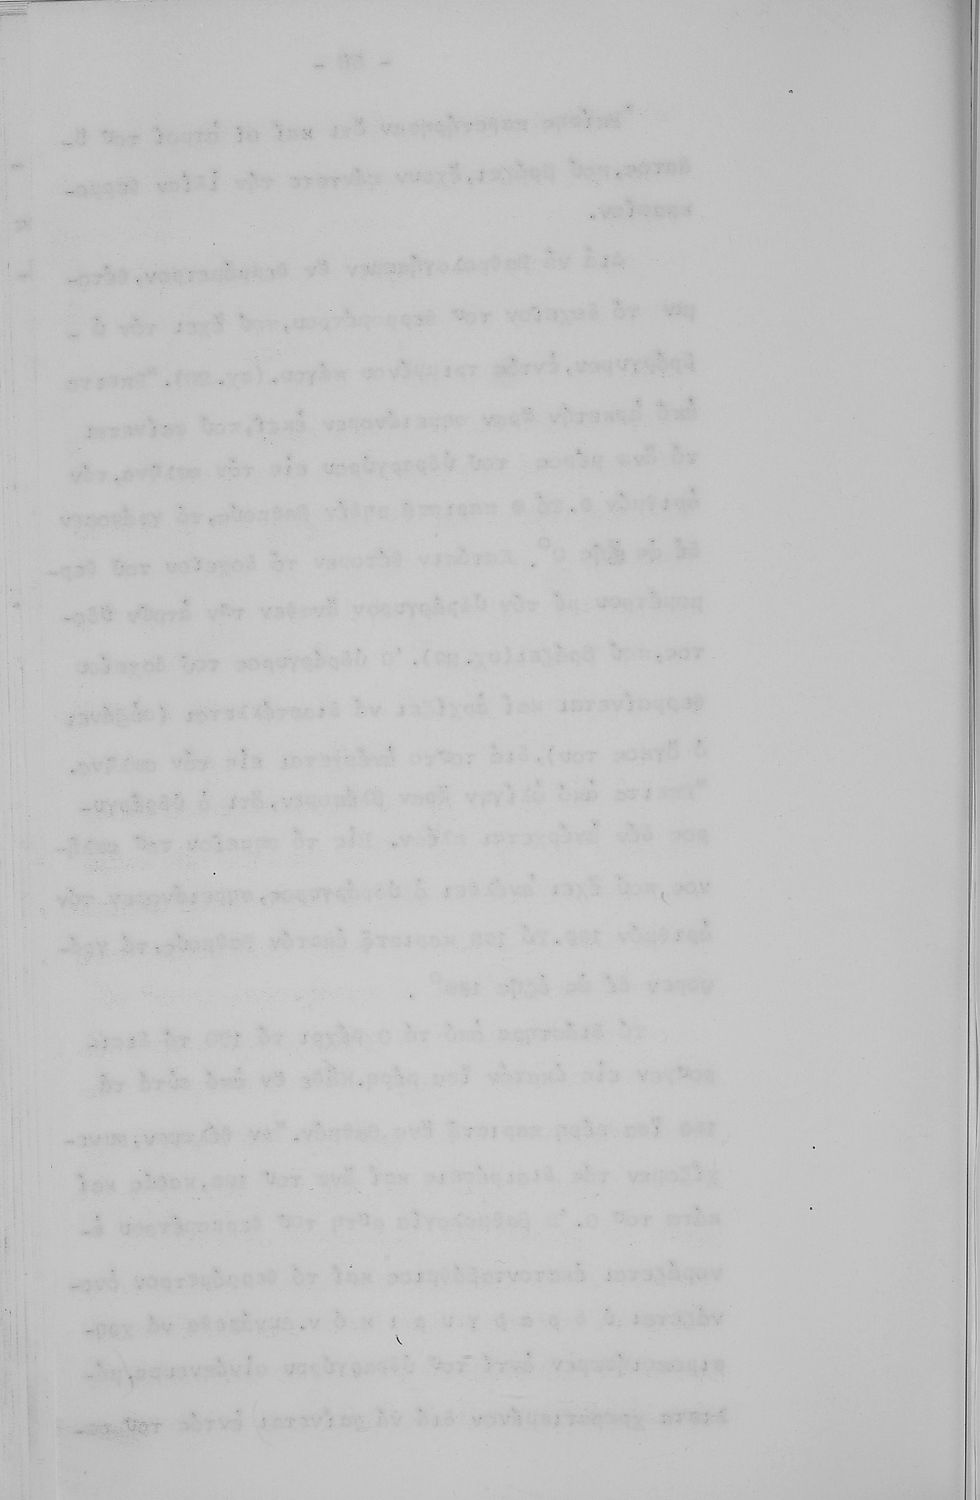 Ἐπίσης παρατήρησαν ὅτι καί οἱ ἀτμοί τοῦ ὕ-
δατος, ποῦ βράζει, ἔχουν πάντοτε τήν ἰδίαν θερμο-
κρασίαν.
Διά νά βαθμολογήσωμεν ἕν θερμόμετρον, θέτο-
μεν τό δοχεῖον τοῦ θερμομέτρου, ποῦ ἔχει τόν ὑ-
δράργυρον, ἐντός τριμμένου πάγου, (σχ. ). Ἔπειτα
ἀπό ἀρκετήν ὥραν σημειώνομεν ἐκεῖ, ποῦ φαίνεται
τό ἄνω μέρος τοῦ ὑδραργύρου εἰς τόν σωλῆνα, τόν
ἀριθμόν 0. Τό 0 παριστᾷ μηδέν βαθμούς, τό γράφομεν
δέ ὡς ἑξῆς 0°. Κατόπιν θέτομεν τό δοχεῖον τοῦ θερ-
μομέτρου μέ τόν ὑδράργυρον ἄνωθεν τῶν ἀτμῶν ὕδα-
τος, ποῦ βράζει (σχ. ). Ὁ ὑδράργυρος τοῦ δοχείου
θερμαίνεται καί ἀρχίζει νά διαστέλλεται (αὐξάνει
ὁ ὄγκος του), διά τοῦτο ἀνέρχεται εἰς τόν σωλῆνα.
Ἔπειτα ἀπό ὀλίγην ὥραν βλέπομεν, ὅτι ὁ ὑδράργυ-
ρος δέν ἀνέρχεται πλέον. Εἰς τό σημεῖον τοῦ σωλῆ-
νος, ποῦ ἔχει ἀνέλθει ὁ ὑδράργυρος, σημειώνομεν τόν
ἀριθμόν 100. Τό 100 παριστᾷ ἑκατόν βαθμούς, τό γρά-
φομεν δέ ὡς ἑξῆς 100°.
Τό διάστημα ἀπό τό 0 μέχρι τό 100 τό διαιρ-
οῦμεν εἰς ἑκατόν ἴσα μέρη. Κάθε ἕν ἀπό αὐτά τά
100 ἴσα μέρη παριστᾷ ἕνα βαθμόν. Ἄν θέλωμεν, συνε-
χίζομεν τάς διαιρέσεις καί ἄνω τοῦ 100, καθώς καί
κάτω τοῦ 0. Ἡ βαθμολογία αὕτη τοῦ θερμομέτρου ὀ-
νομάζεται ἑκατονταβάθμιος καί τό θερμόμετρον ὀνο-
μάζεται ὑ δ ρ α ρ γ υ ρ ι κ ό ν. Δυνάμεθα νά χρη-
σιμοποιήσωμεν ἀντί τοῦ ὑδραργύρου οἰνόπνευμα, μά-
λιστα χρωματισμένον διά νά φαίνεται ἐντός τοῦ σω-